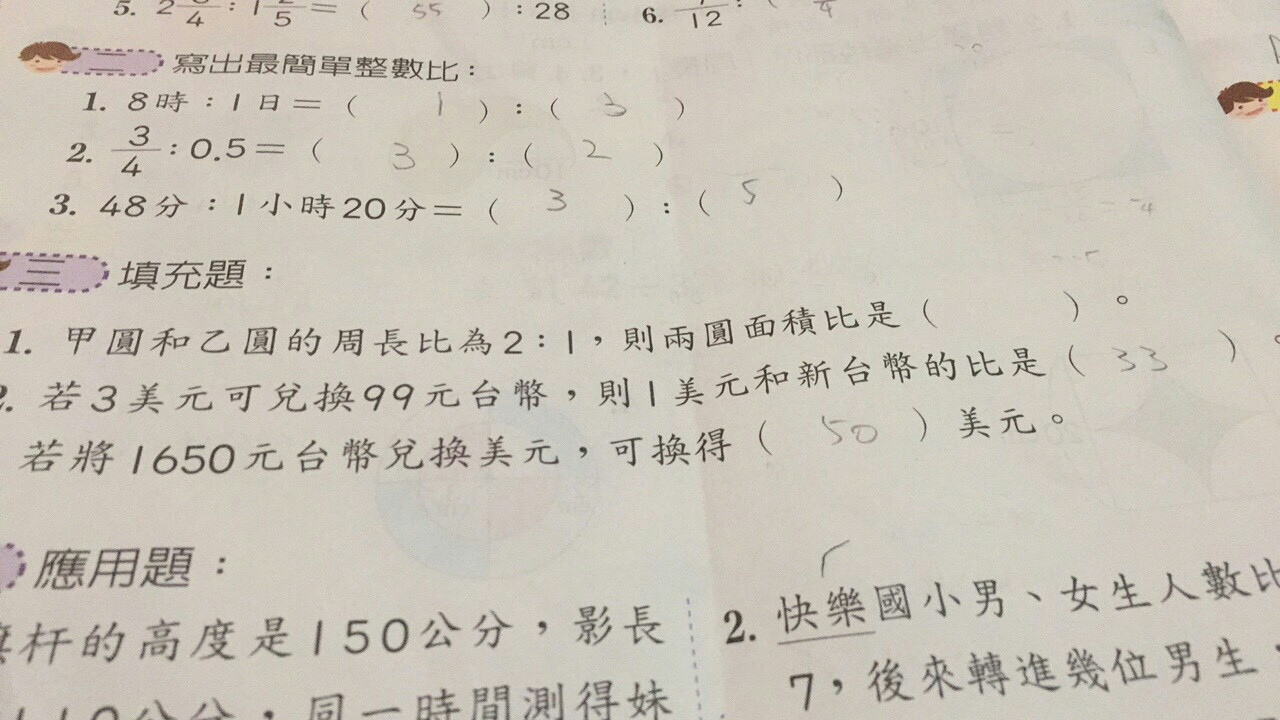 5. 2 /4 : 1 /5 = ( 55 ) : 28
6. /12 :
二 寫出最簡單整數比：
1. 8時：1日＝( 1 )：( 3 )
2. 3/4：0.5＝( 3 )：( 2 )
3. 48分：1小時20分＝( 3 )：( 5 )
三 填充題：
1. 甲圓和乙圓的周長比為2：1，則兩圓面積比是( )。
2. 若3美元可兌換99元台幣，則1美元和新台幣的比是( 33 )。
若將1650元台幣兌換美元，可換得( 50 )美元。
應用題：
杆的高度是150公分，影長
110公分，同一時間測得妹
2. 快樂國小男、女生人數比
7，後來轉進幾位男生，